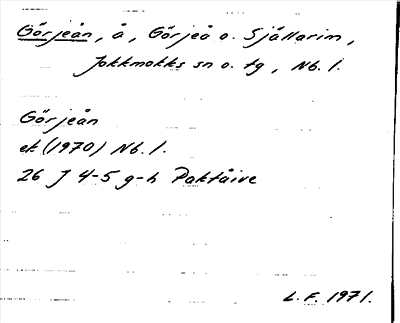 Görjeån, å, Görjeå o. Sjållarim,
Jokkmokks sn o. tg, Nb. l.
Görjeån
ek (1970) Nb. l.
26 J 4-5 g-h Paktåive
L.F. 1971.